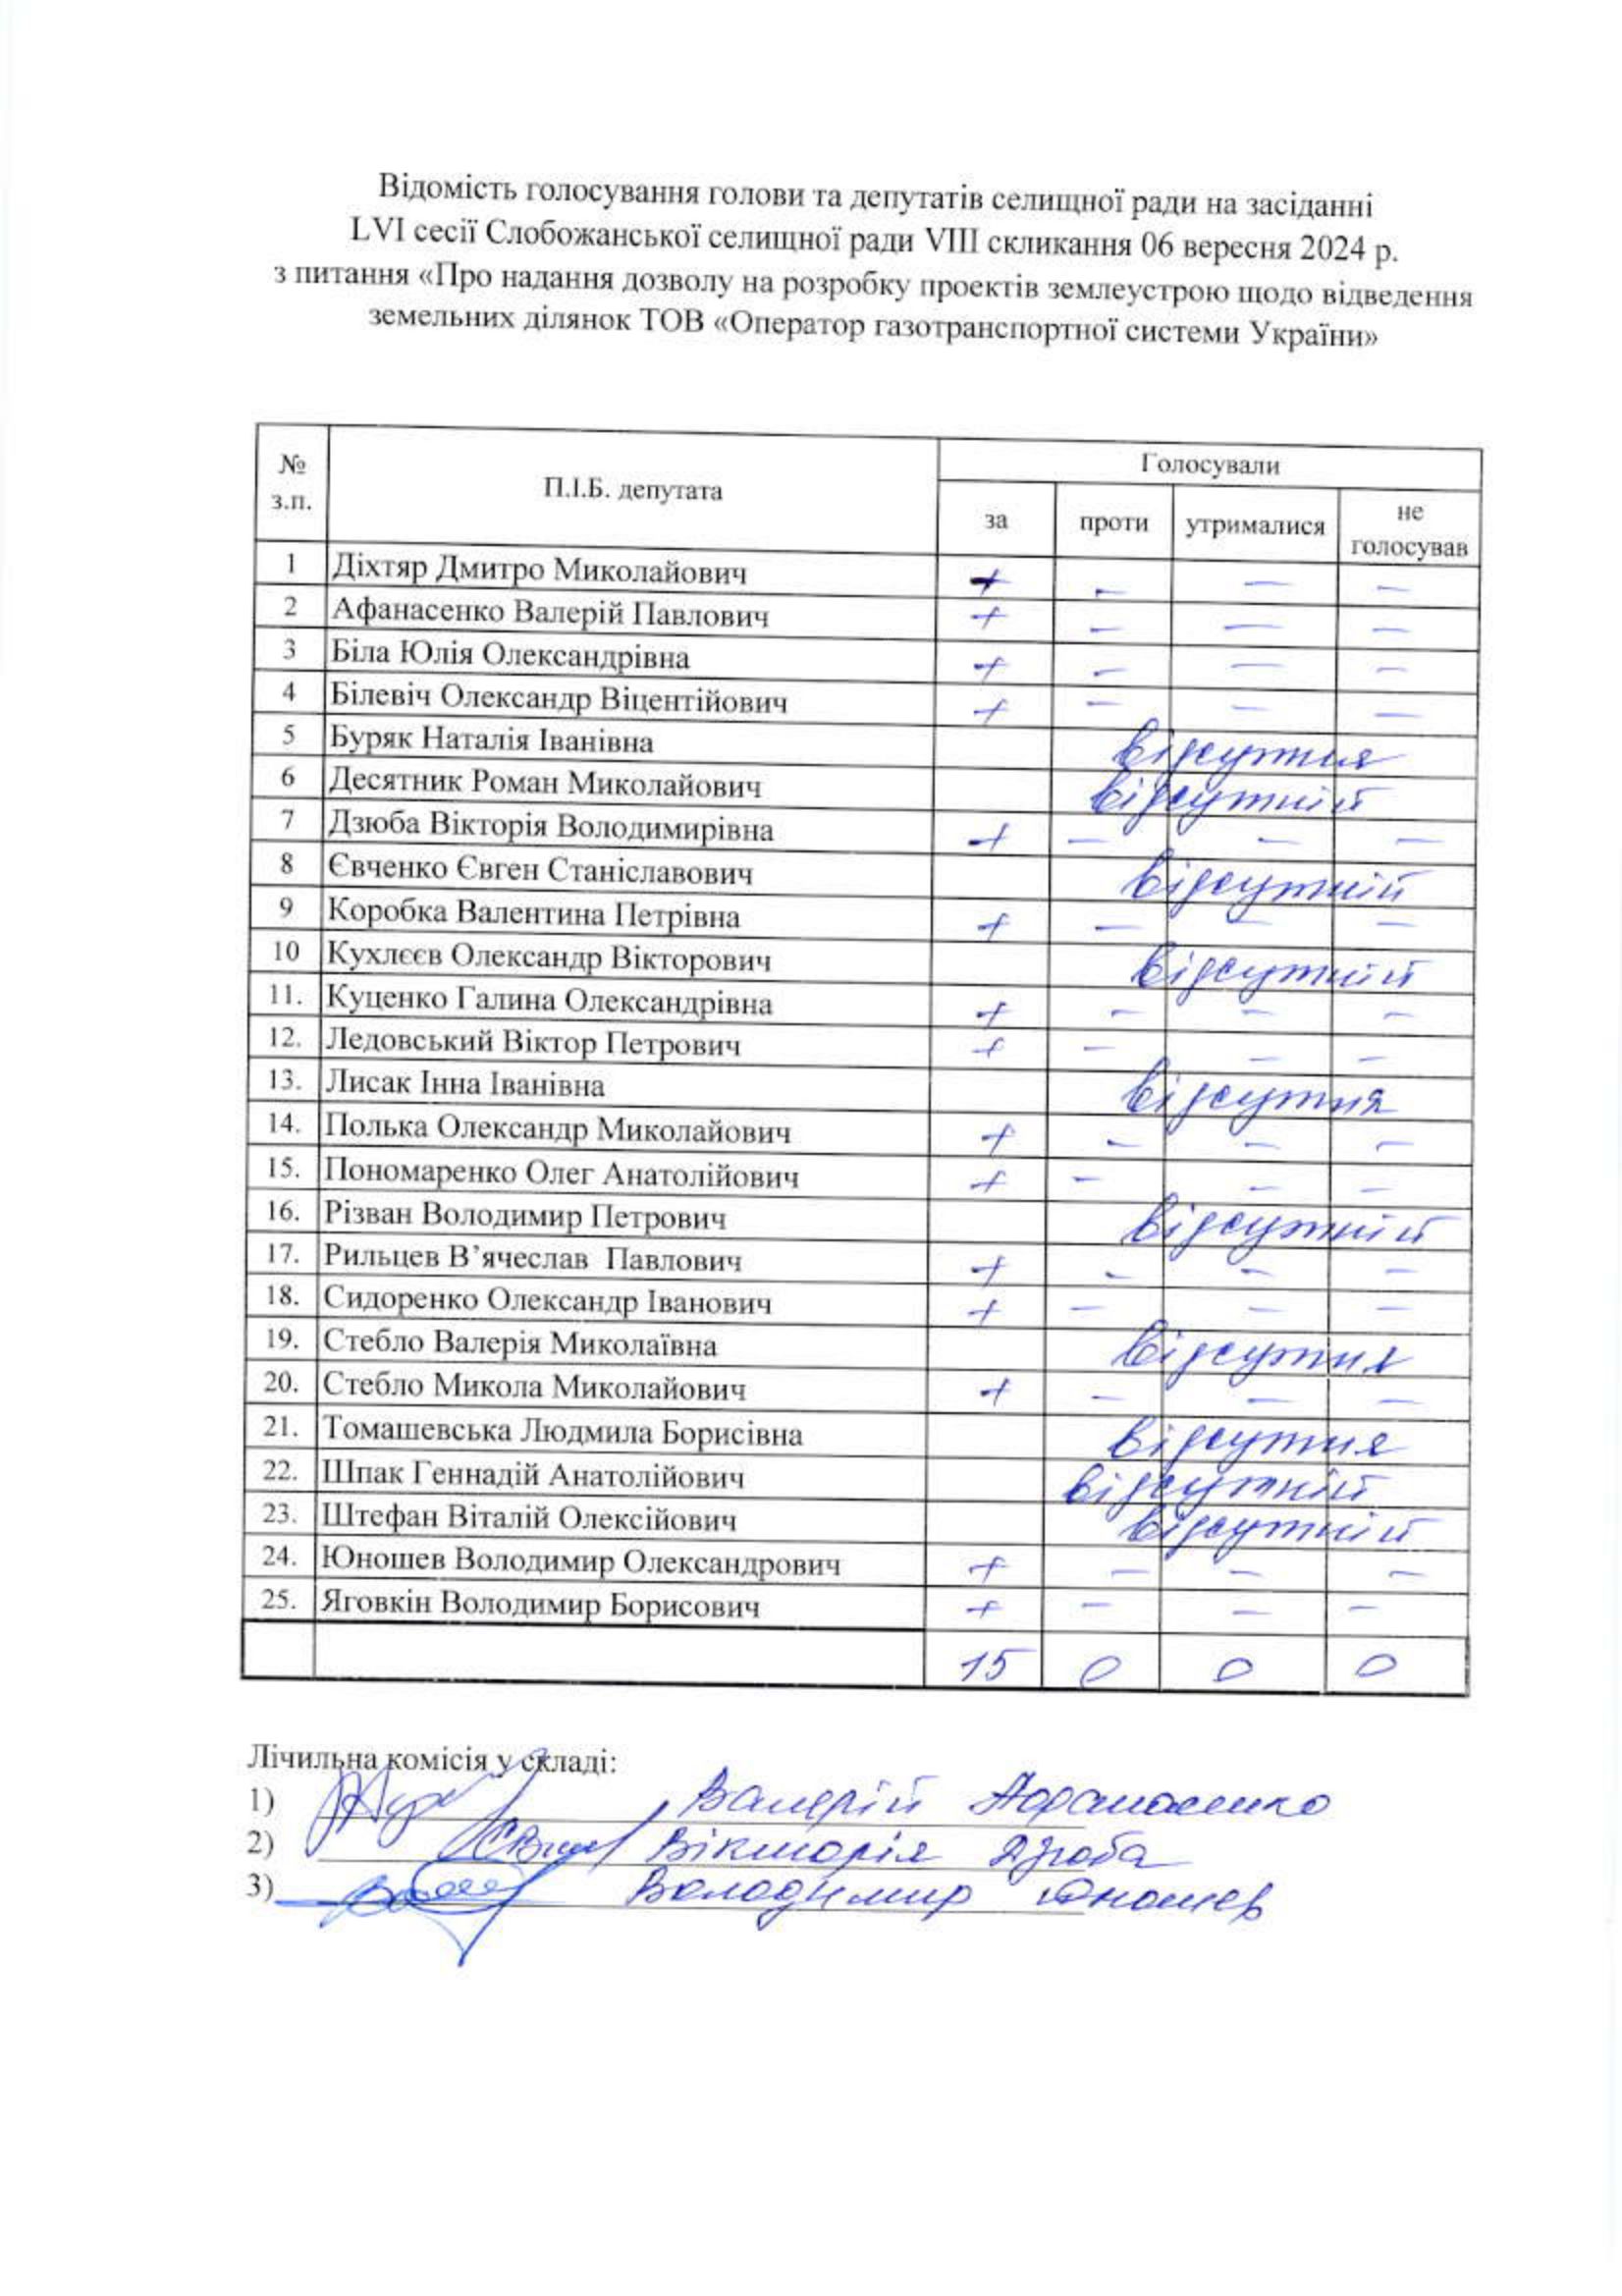 Відомість голосування голови та депутатів селищної ради на засіданні
LVI сесії Слобожанської селищної ради VIII скликання 06 вересня 2024 р.
з питання «Про надання дозволу на розробку проектів землеустрою щодо відведення
земельних ділянок ТОВ «Оператор газотранспортної системи України»
№ з.п. П.І.Б. депутата Голосували
за проти утрималися не голосував
1 Діхтяр Дмитро Миколайович + – – –
2 Афанасенко Валерій Павлович + – – –
3 Біла Юлія Олександрівна + – – –
4 Білевіч Олександр Віцентійович + – – –
5 Буряк Наталія Іванівна відсутня
6 Десятник Роман Миколайович відсутній
7 Дзюба Вікторія Володимирівна + – – –
8 Євченко Євген Станіславович відсутній
9 Коробка Валентина Петрівна + – – –
10 Кухлєєв Олександр Вікторович відсутній
11. Куценко Галина Олександрівна + – – –
12. Ледовський Віктор Петрович + – – –
13. Лисак Інна Іванівна відсутня
14. Полька Олександр Миколайович + – – –
15. Пономаренко Олег Анатолійович + – – –
16. Різван Володимир Петрович відсутній
17. Рильцев В’ячеслав Павлович + – – –
18. Сидоренко Олександр Іванович + – – –
19. Стебло Валерія Миколаївна відсутня
20. Стебло Микола Миколайович + – – –
21. Томашевська Людмила Борисівна відсутня
22. Шпак Геннадій Анатолійович відсутній
23. Штефан Віталій Олексійович відсутній
24. Юношев Володимир Олександрович + – – –
25. Яговкін Володимир Борисович + – – –
15 0 0 0
Лічильна комісія у складі:
1) Валерій Афанасенко
2) Вікторія Дзюба
3) Володимир Юношев